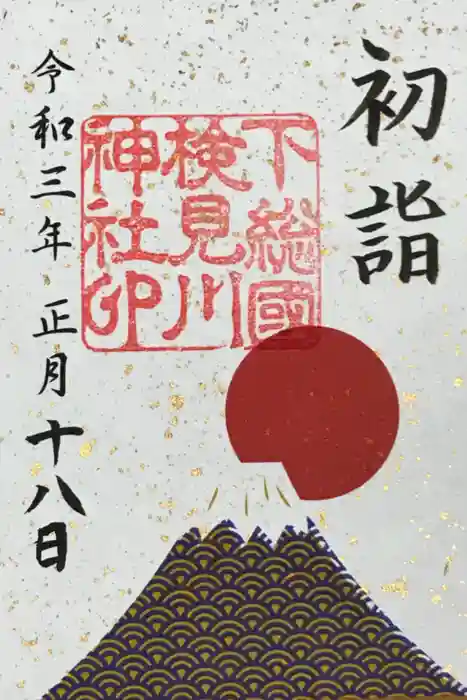 初詣
下総國
検見川
神社印
令和三年 正月十八日